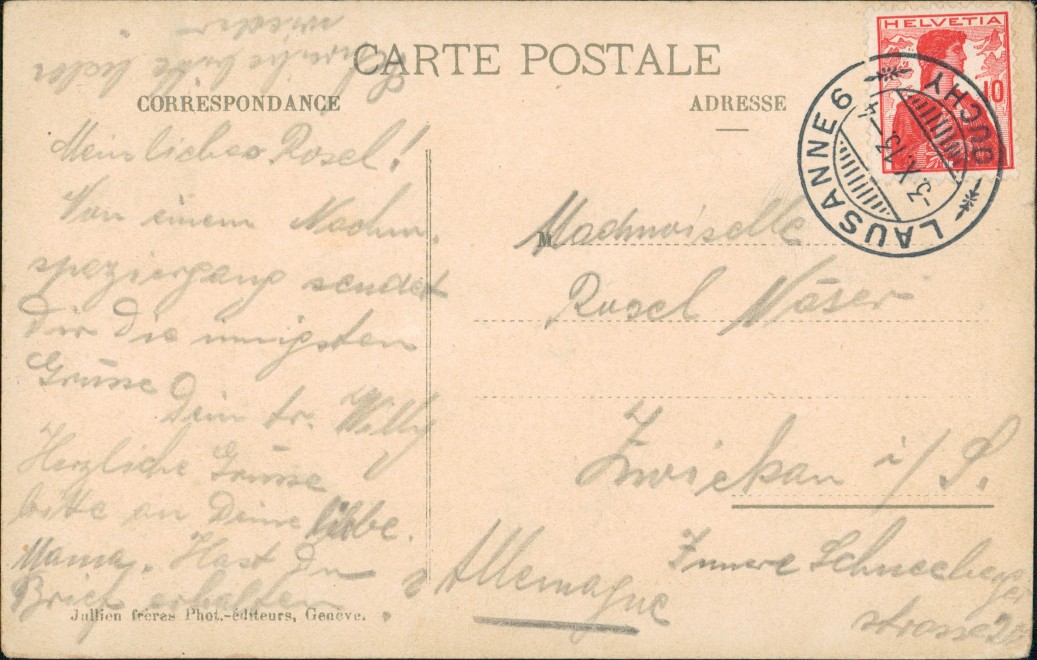 CARTE POSTALE
CORRESPONDANCE
ADRESSE
HELVETIA
10
LAUSANNE 6
OUCHY
-3.X.13-4
Rosel!
Von einem Nachm.
spaziergang sendet
Dir die innigsten
Grüsse
Dein tr. Willy
Herzliche Grüsse
bitte an Deine liebe
Mama. Hast Du
Brief erhalten?
Schreibe bitte
wieder
M
Madmoiselle
Rosel Näser
Zwickau i/S.
Innere Schneeberger
strasse 20
Allemagne
Jullien frères Phot.-éditeurs, Genève.